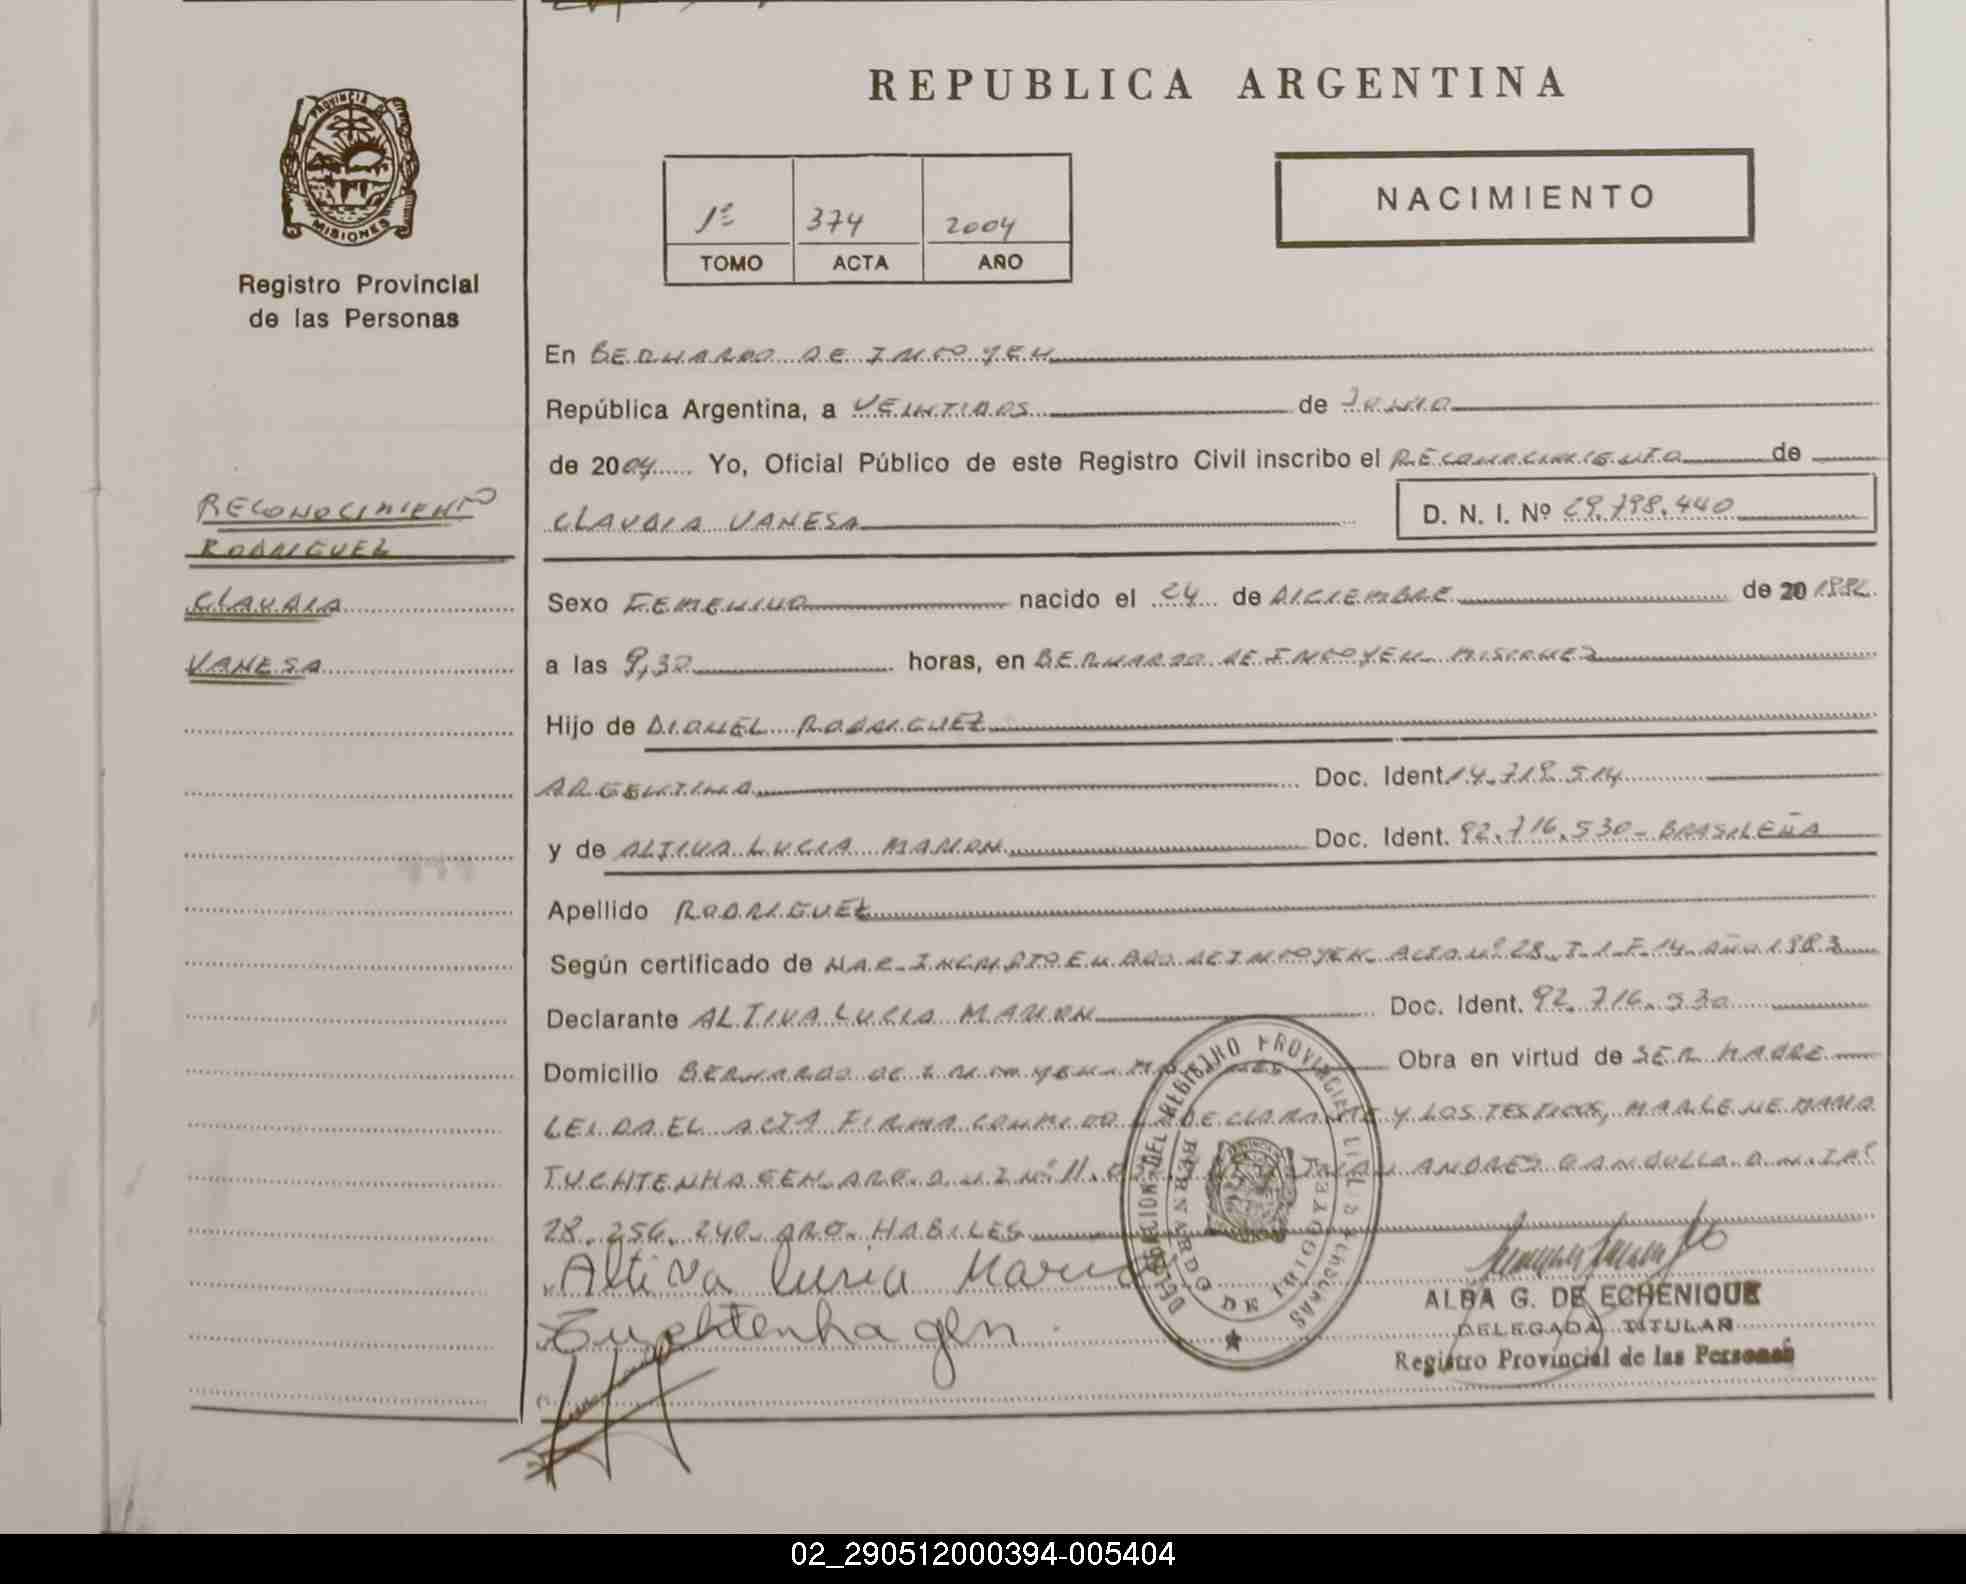 REPUBLICA ARGENTINA
PROVINCIA DE
MISIONES
Registro Provincial
de las Personas
NACIMIENTO
1º 374 2004
TOMO ACTA AÑO
En BERNARDO DE IRIGOYEN
República Argentina, a VEINTIDOS de JUNIO
de 2004 Yo, Oficial Público de este Registro Civil inscribo el RECONOCIMIENTO de
CLAUDIA VANESA D. N. I. Nº 29.798.440
RECONOCIMIENTO
RODRIGUEZ
CLAUDIA
VANESA
Sexo FEMENINO nacido el 24 de DICIEMBRE de 20 1982
a las 9,30 horas, en BERNARDO DE IRIGOYEN MISIONES
Hijo de DIONEL RODRIGUEZ
ARGENTINA Doc. Ident. 14.719.514
y de ALTIVA LUCIA MARON Doc. Ident. 92.716.530- BRASILEÑA
Apellido RODRIGUEZ
Según certificado de NAC. INSCRIPTO EN BDO DE IRIGOYEN. ACTA Nº 28. T. 1. F. 14. AÑO 1983
Declarante ALTIVA LUCIA MARON Doc. Ident. 92.716.530
Domicilio BERNARDO DE IRIGOYEN Obra en virtud de SER MADRE
LEIDA EL ACTA FIRMA CONMIGO DECLARANTE Y LOS TESTIGOS, MARLENE MARIA
TUCHTENHAGEN. ARG. D.N.I Nº 11. JUAN ANDRES GANDULLA D.N.I Nº
28.256.240. ARG. HABILES
Altiva lucia Maron
Tuchtenhagen.
DELEGACION DEL REGISTRO PROVINCIAL DE LAS PERSONAS
BERNARDO DE IRIGOYEN
ALBA G. DE ECHENIQUE
DELEGADA TITULAR
Registro Provincial de las Personas
02_290512000394-005404